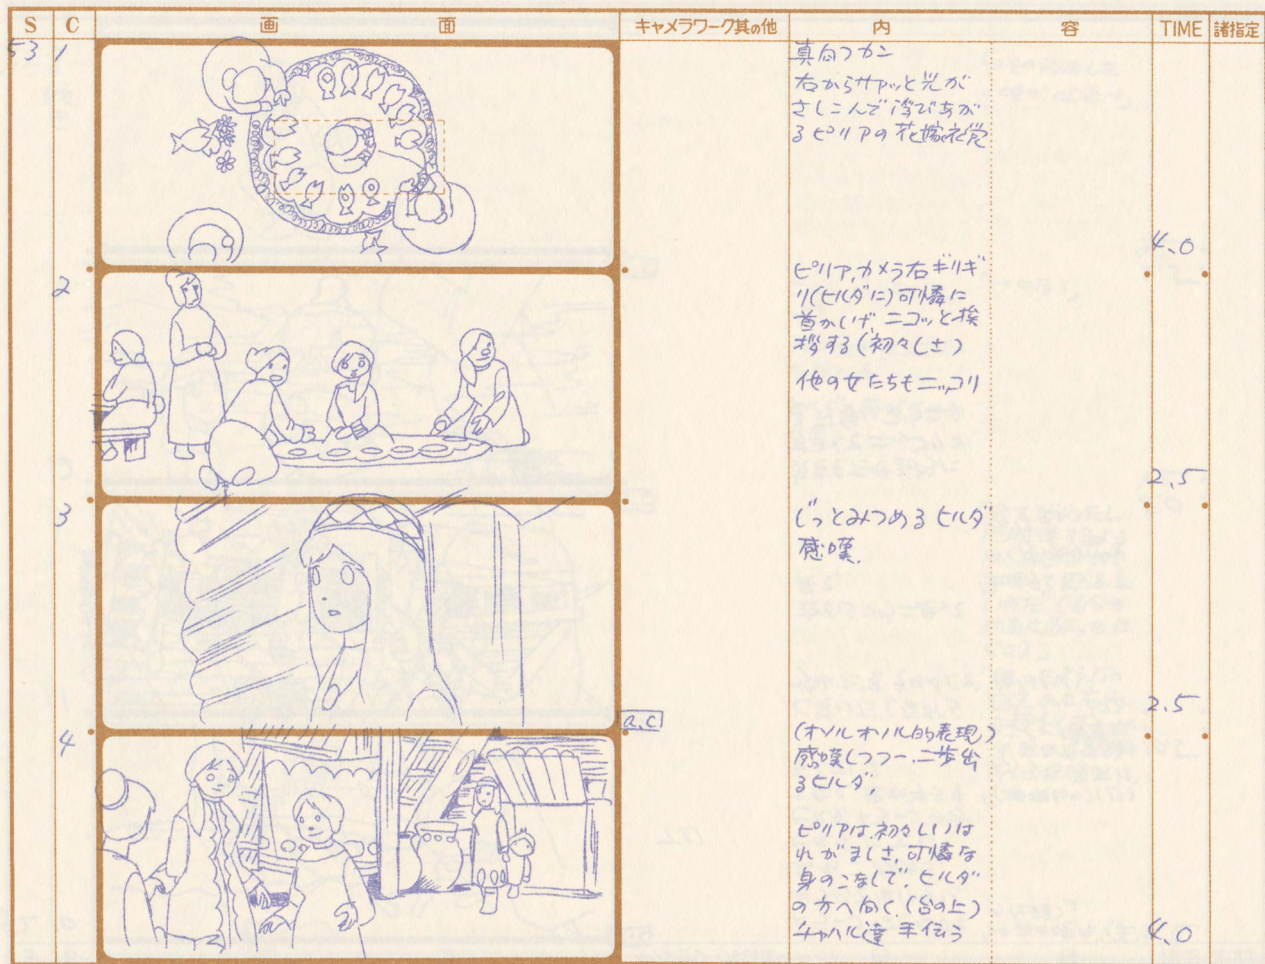 S C 画 面 キャメラワーク其の他 内 容 TIME 諸指定
53 1
真向フカン
右からサァッと光が
さしこんで浮びあが
るピリアの花嫁衣裳
4.0
2
ピリア、カメラ右ギリギ
リ(ヒルダに)可憐に
首かしげ、ニコッと挨
拶する(初々しさ)
他の女たちもニッコリ
2.5
3
じっとみつめるヒルダ
感嘆.
2.5
a.c
4
(オソルオソル的表現)
感嘆しつつ一、二歩出
るヒルダ
ピリアは、初々しいは
れがましさ、可憐な
身のこなしで、ヒルダ
の方へ向く、(台の上)
チャハル達 手伝う
4.0